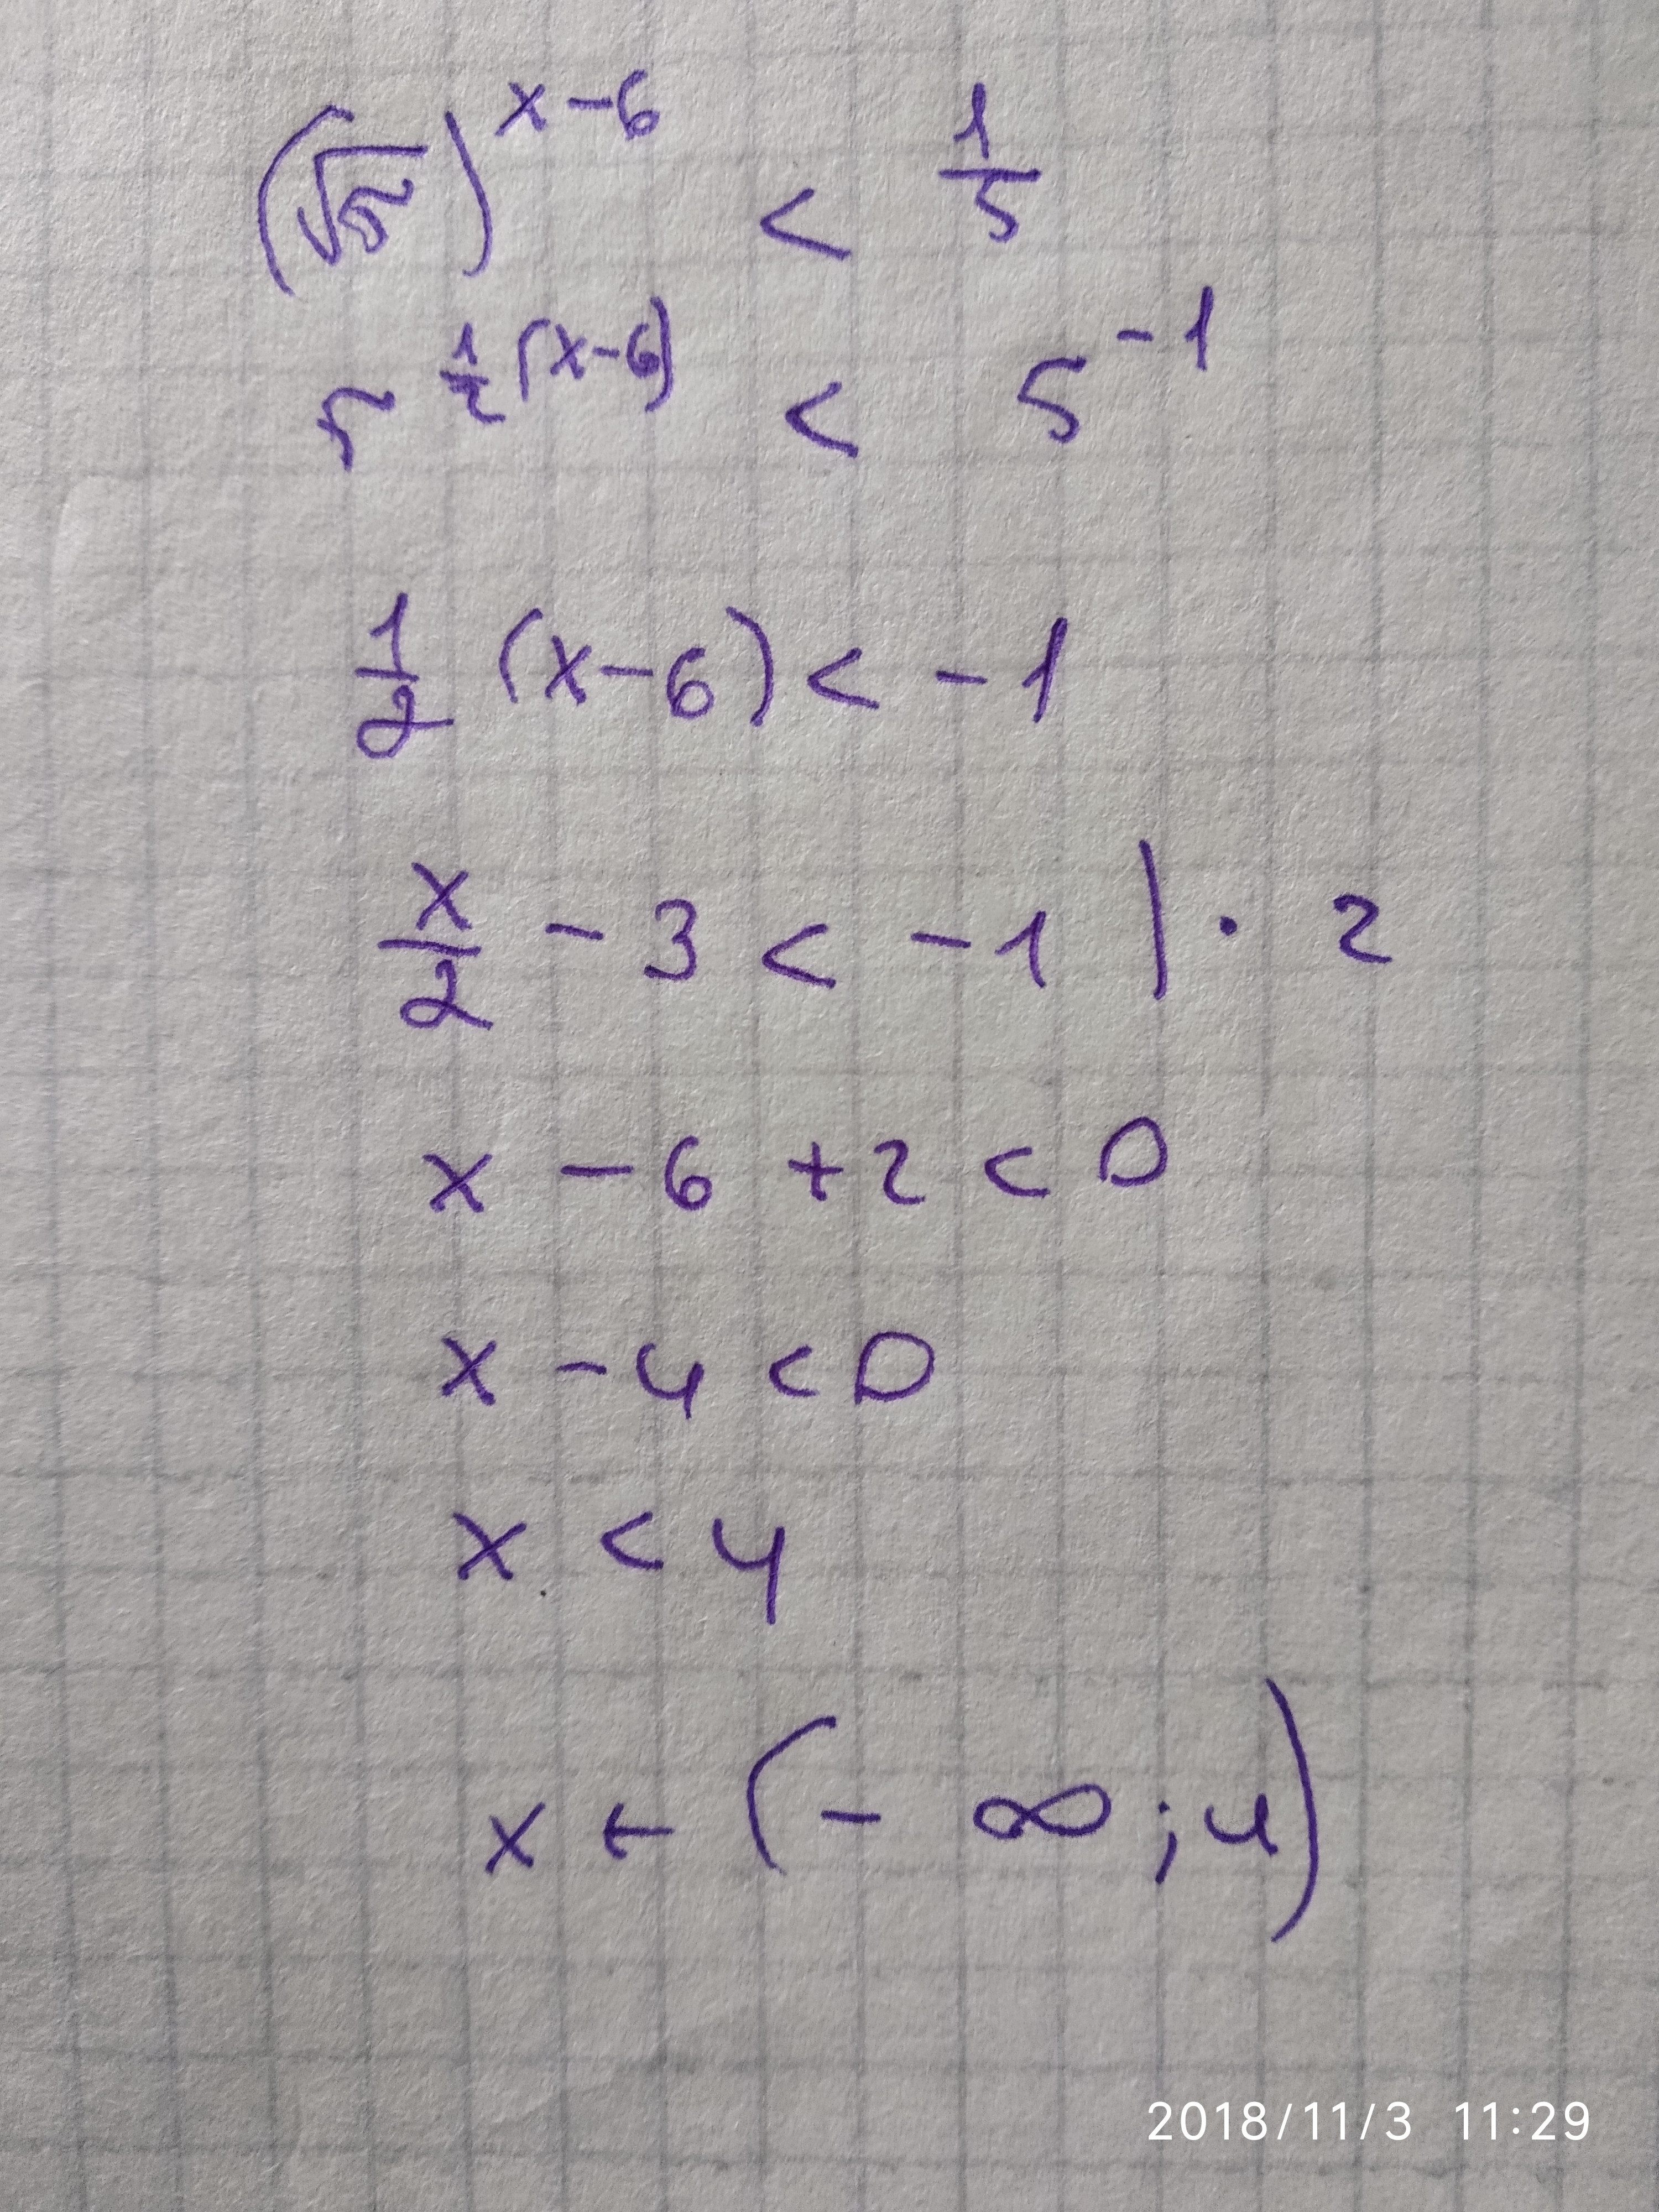 (√5)^(x-6) < 1/5
5^(1/2(x-6)) < 5^(-1)
1/2 (x-6) < -1
x/2 - 3 < -1 | · 2
x - 6 + 2 < 0
x - 4 < 0
x < 4
x ∈ (-∞; 4)
2018/11/3 11:29